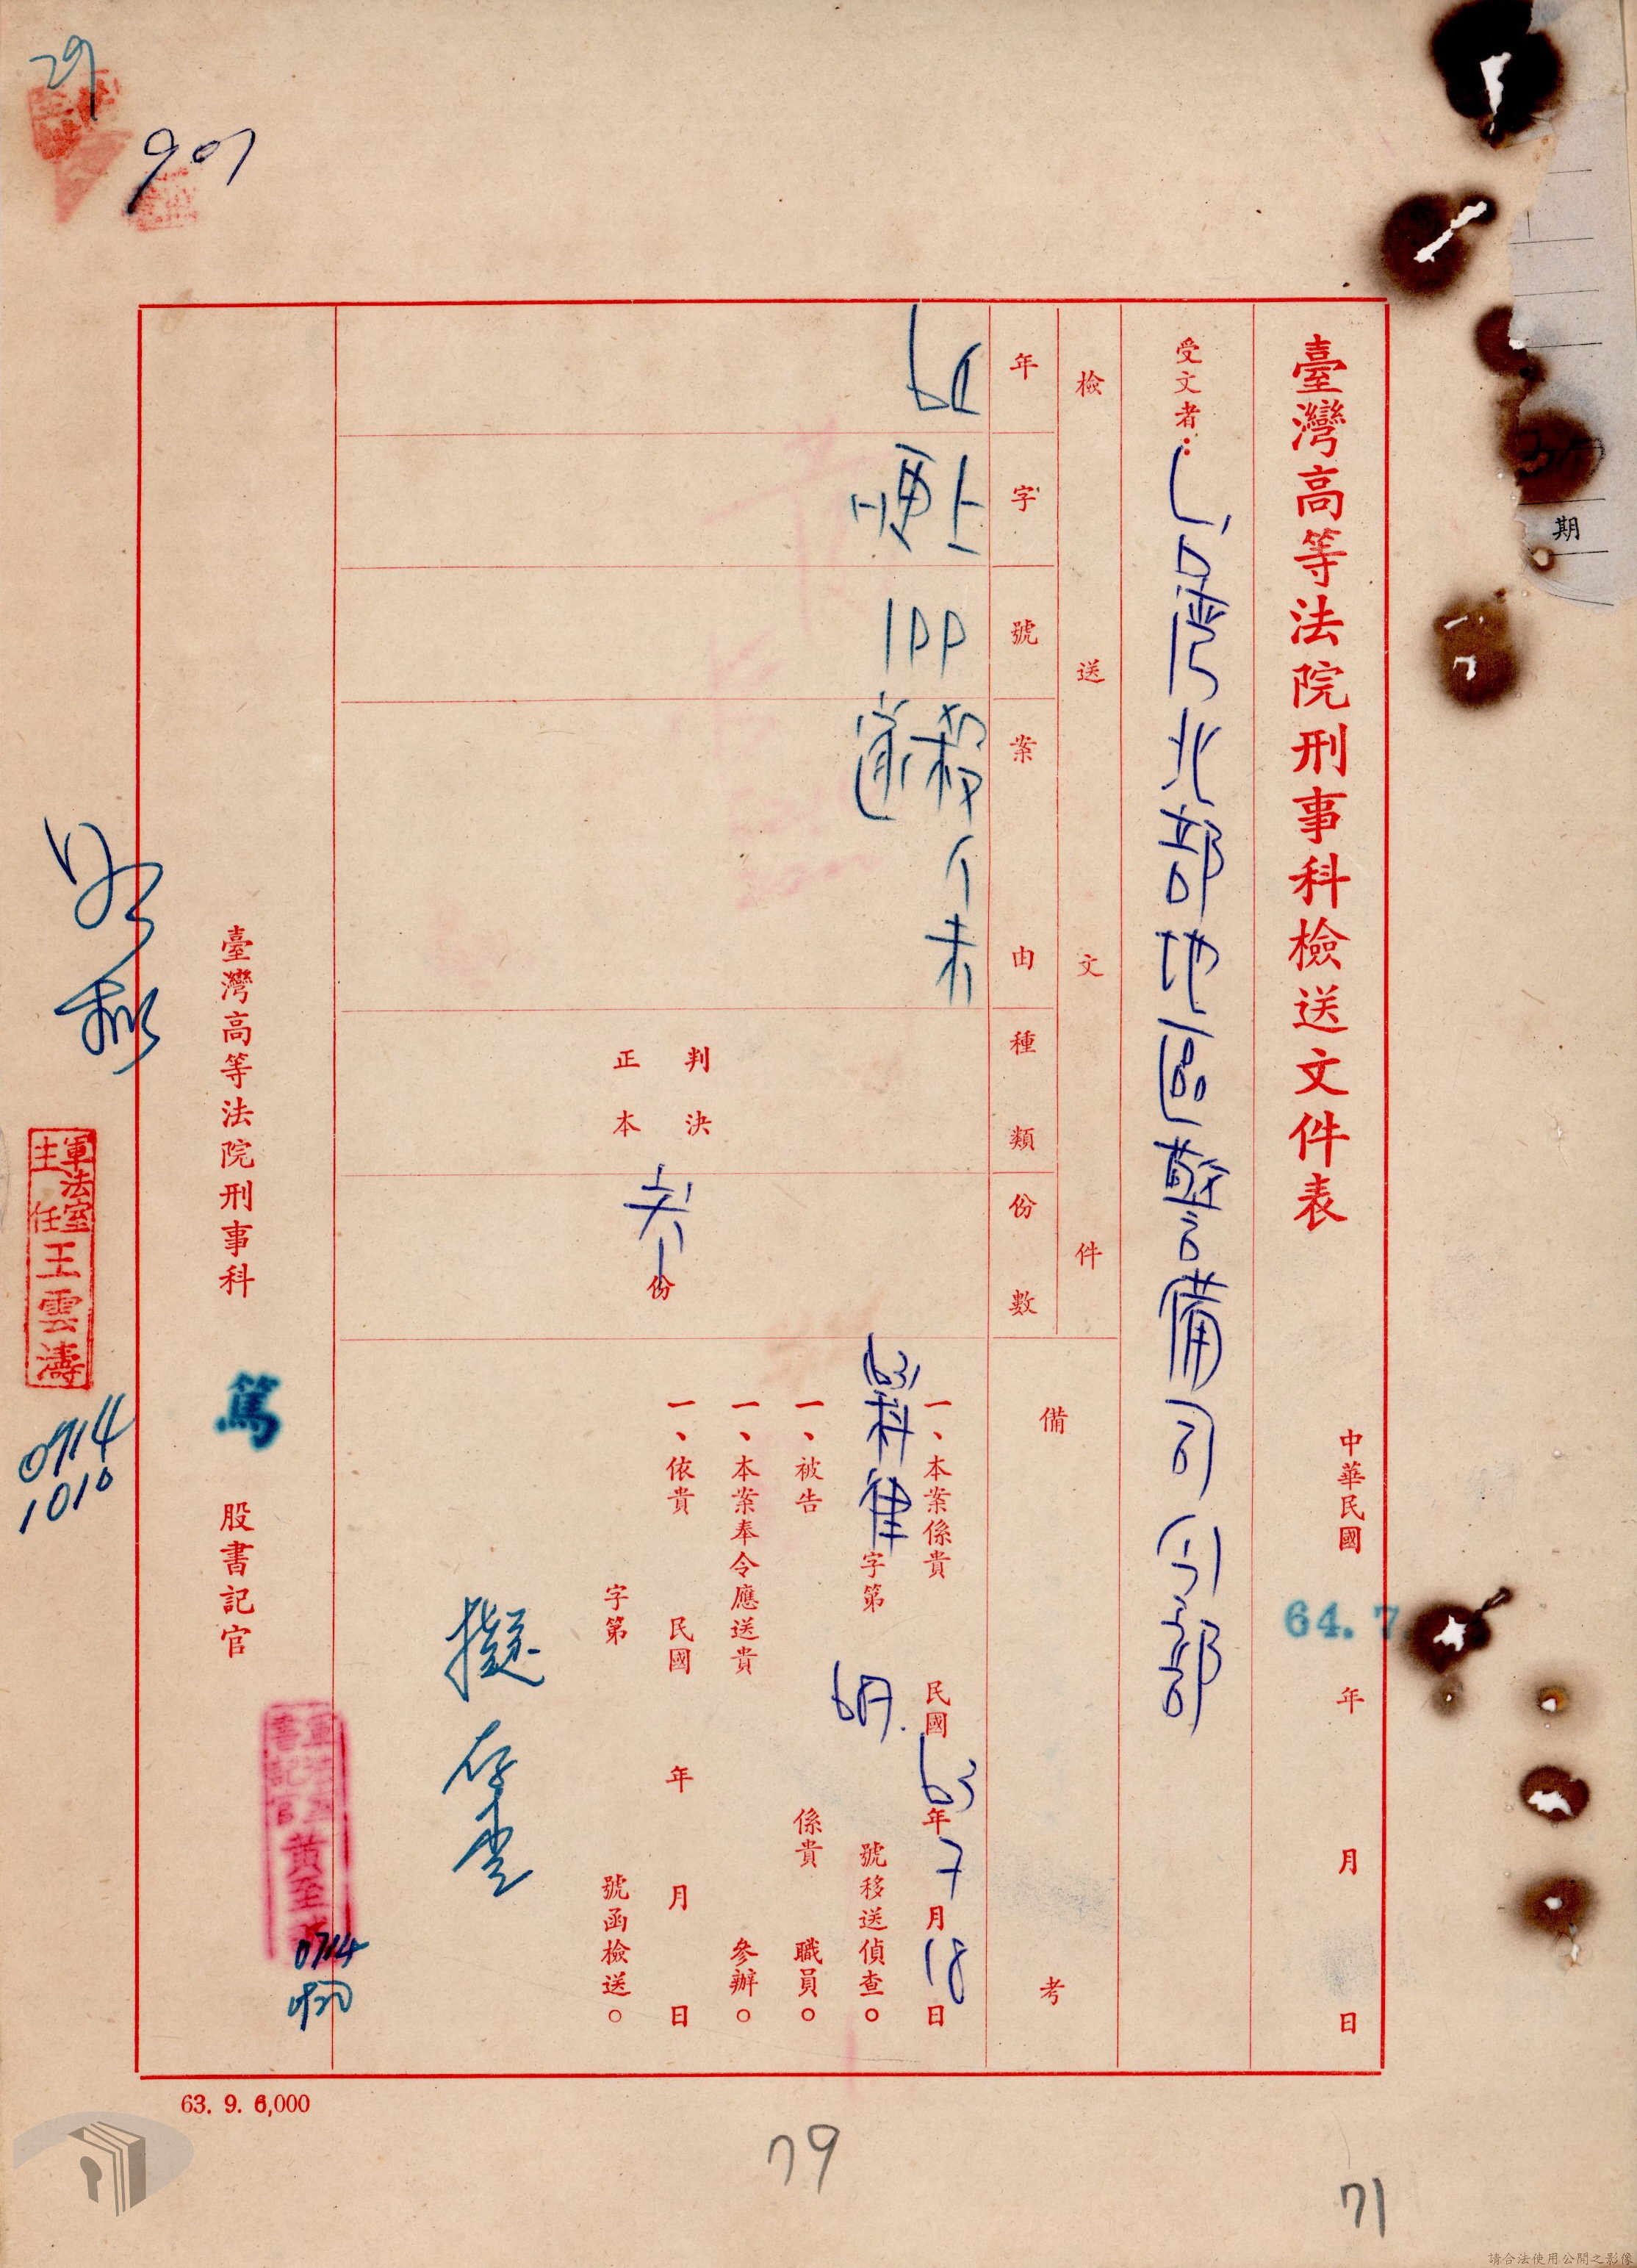 臺灣高等法院刑事科檢送文件表
中華民國 64.7 年 月 日
受文者：台灣北部地區警備司令部
檢送文件
備考
年
字
號
案由
種類
份數
64
上更
100
殺人未遂
判決正本
份
一、本案係貴 民國63年7月18日
字第 號移送偵查。
一、被告 係貴 職員。
一、本案奉令應送貴 參辦。
一、依貴 民國 年 月 日
字第 號函檢送。
擬存查
臺灣高等法院刑事科 篤 股書記官
軍法室主任王雲濤
0714
1010
0714
901
期
63. 9. 6,000
79
71
請合法使用公開之影像